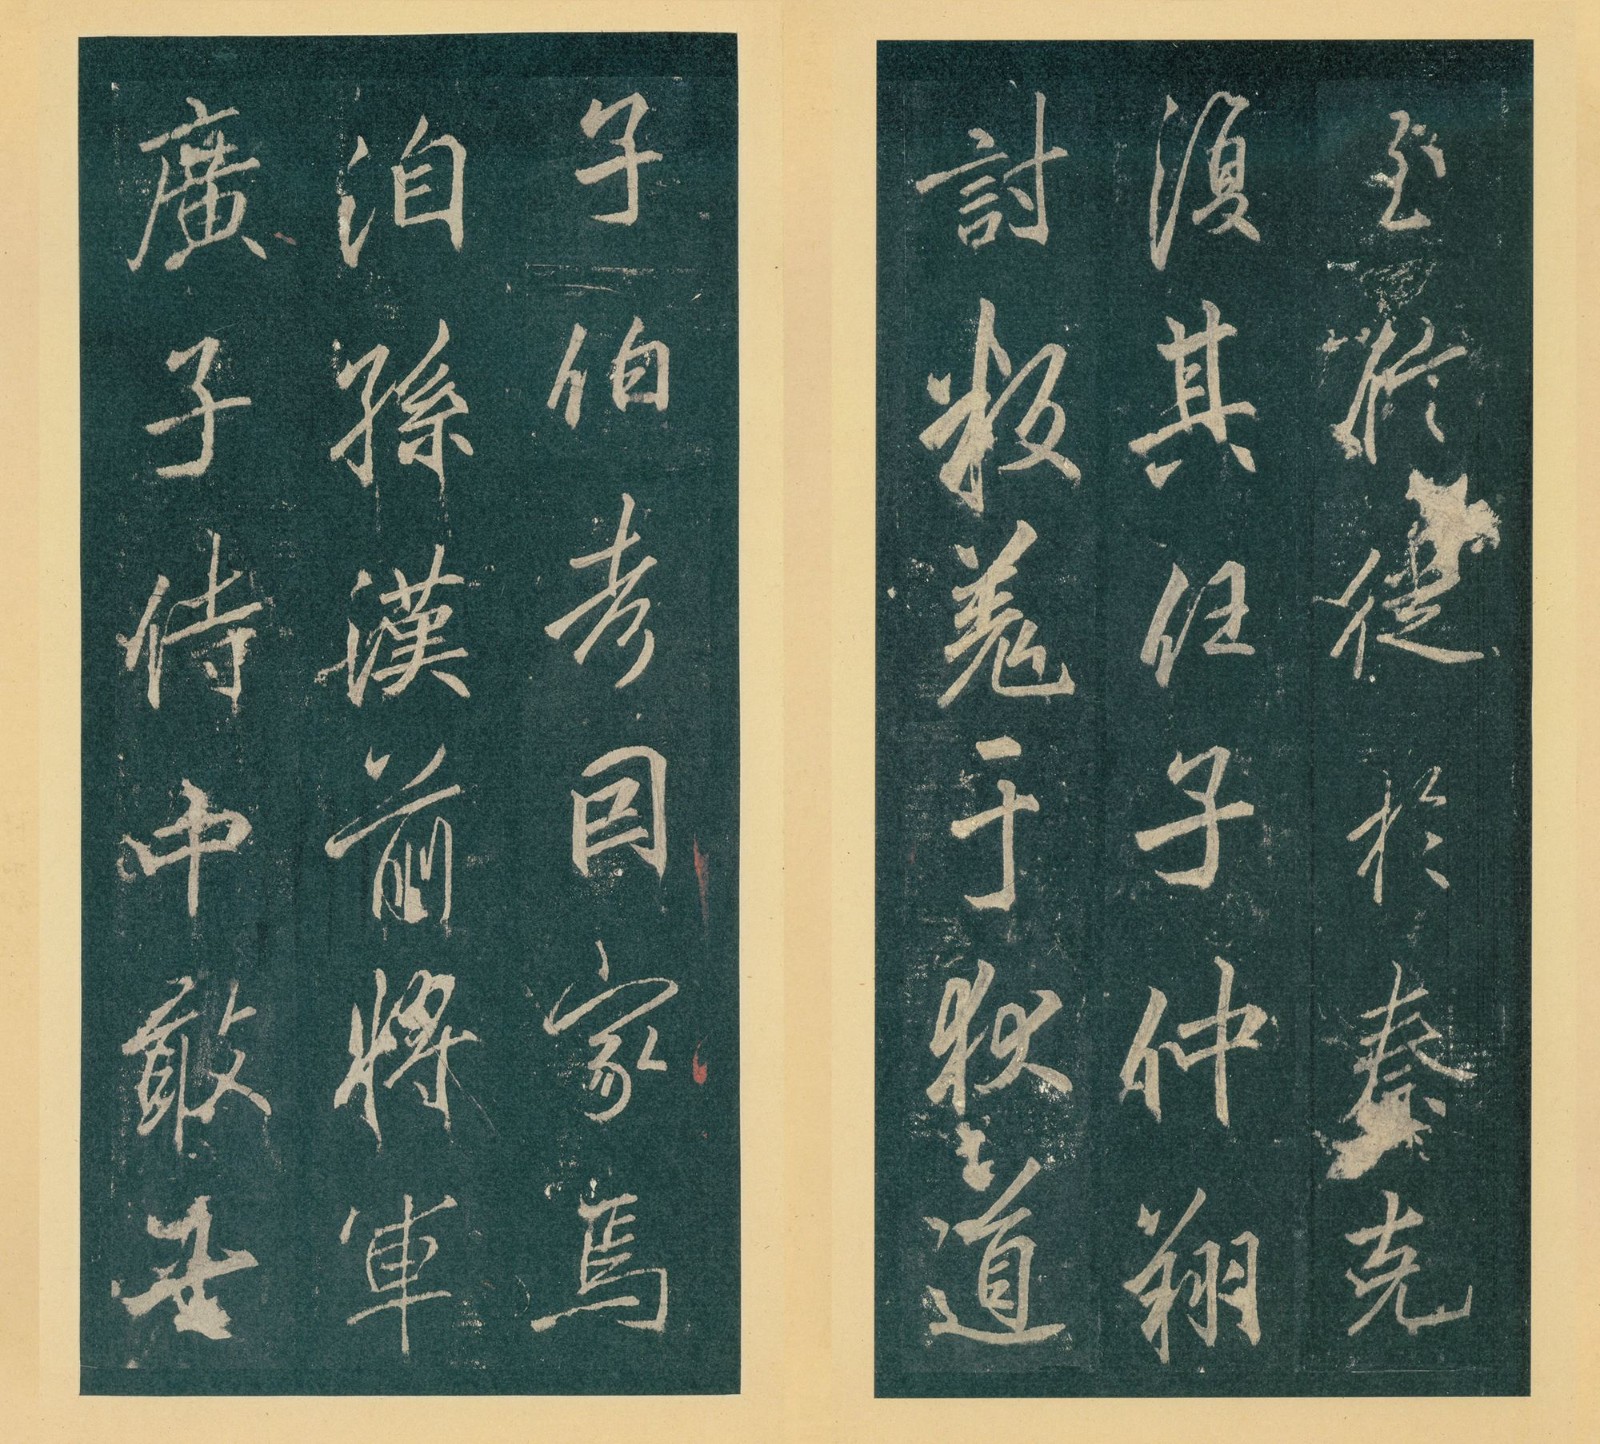 至於徙於秦克
復其任子仲翔
討叛羌于狄道
子伯考因家焉
洎孫漢前將軍
廣子侍中敢